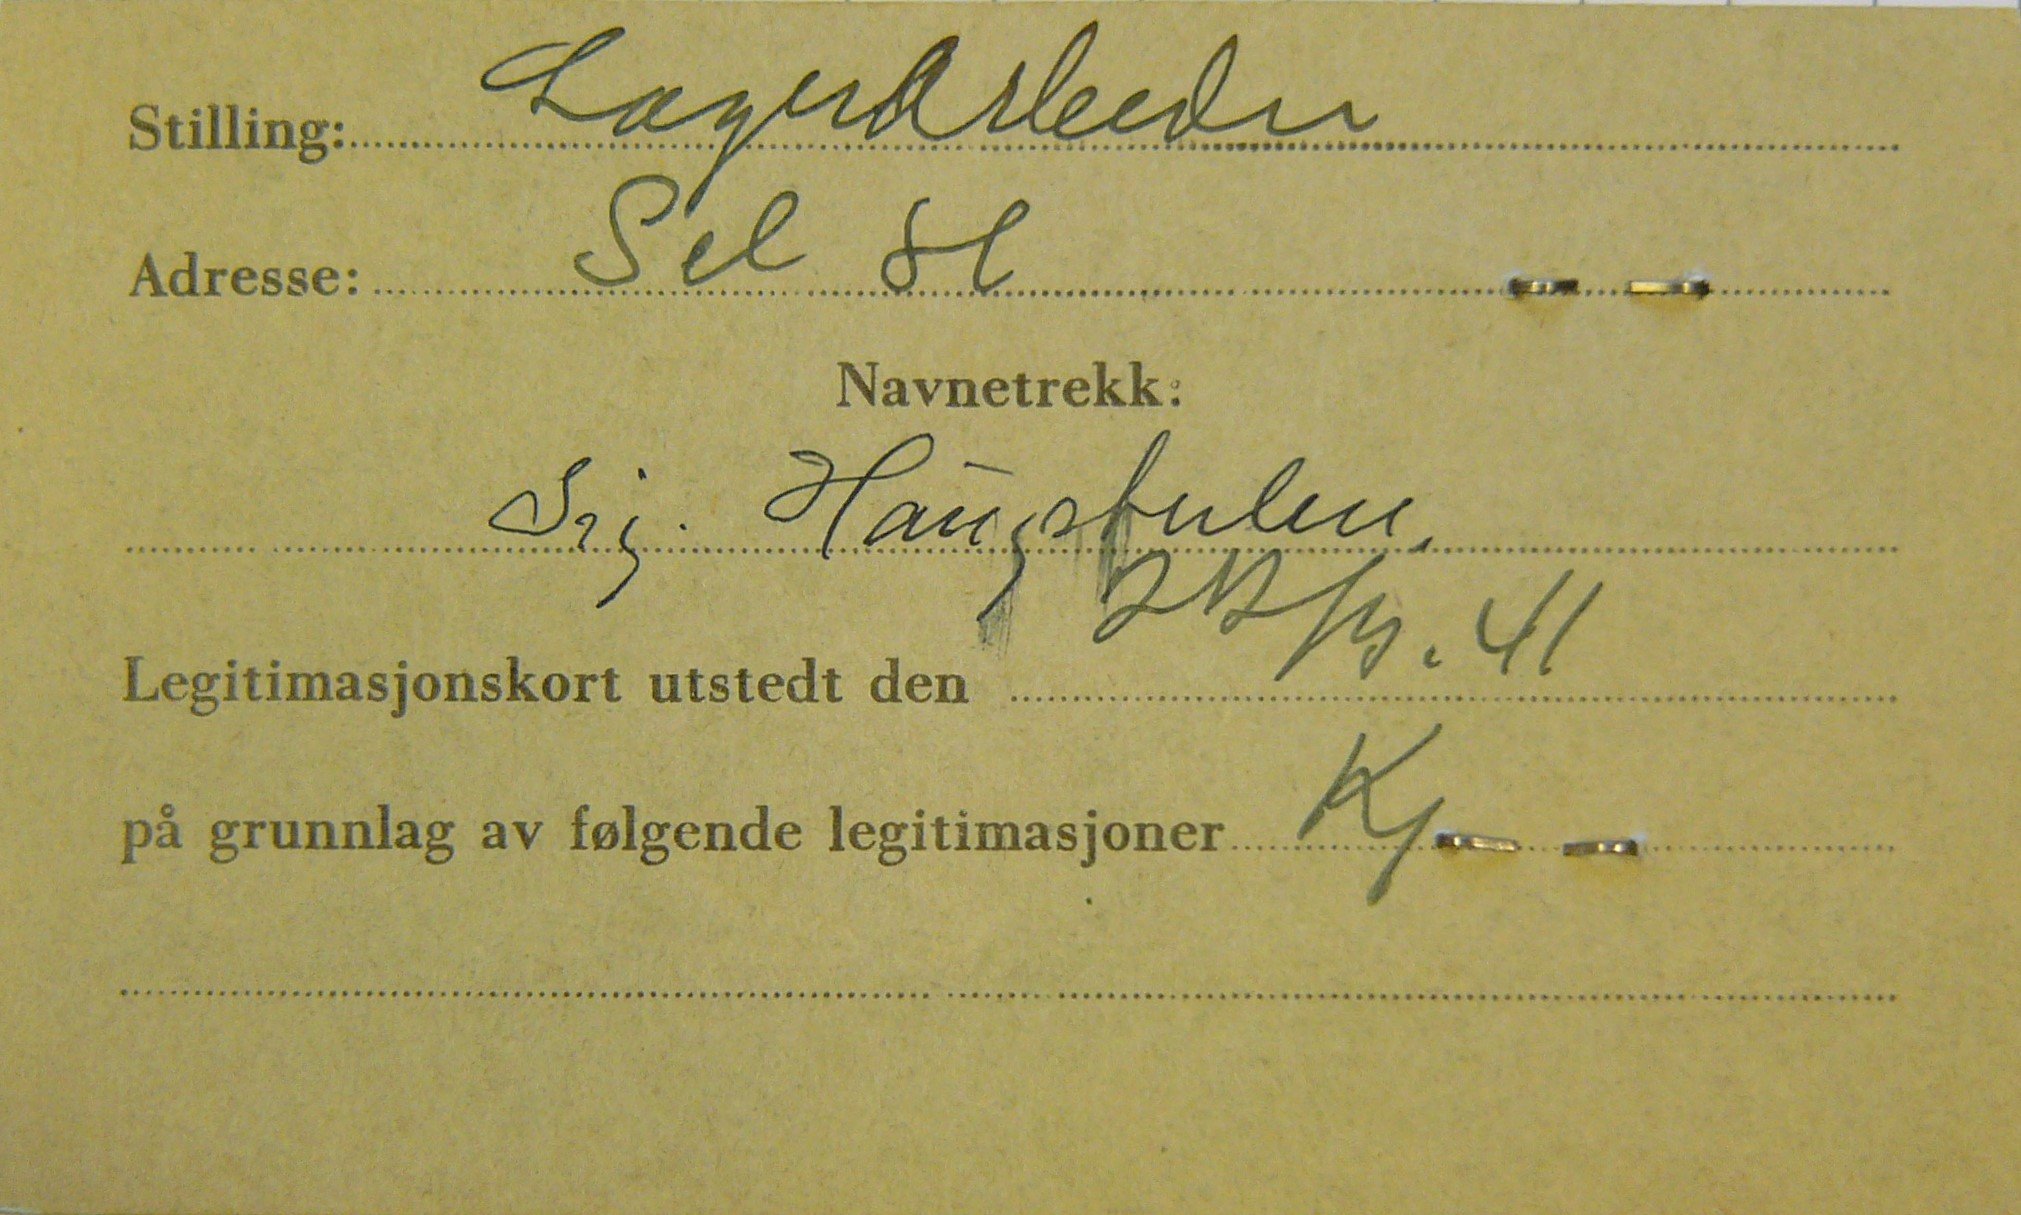 Stilling: LagerArbeider
Adresse: Sel st
Navnetrekk:
Sig. Haugstulen.
Legitimasjonskort utstedt den 22/9. 41
på grunnlag av følgende legitimasjoner Kj